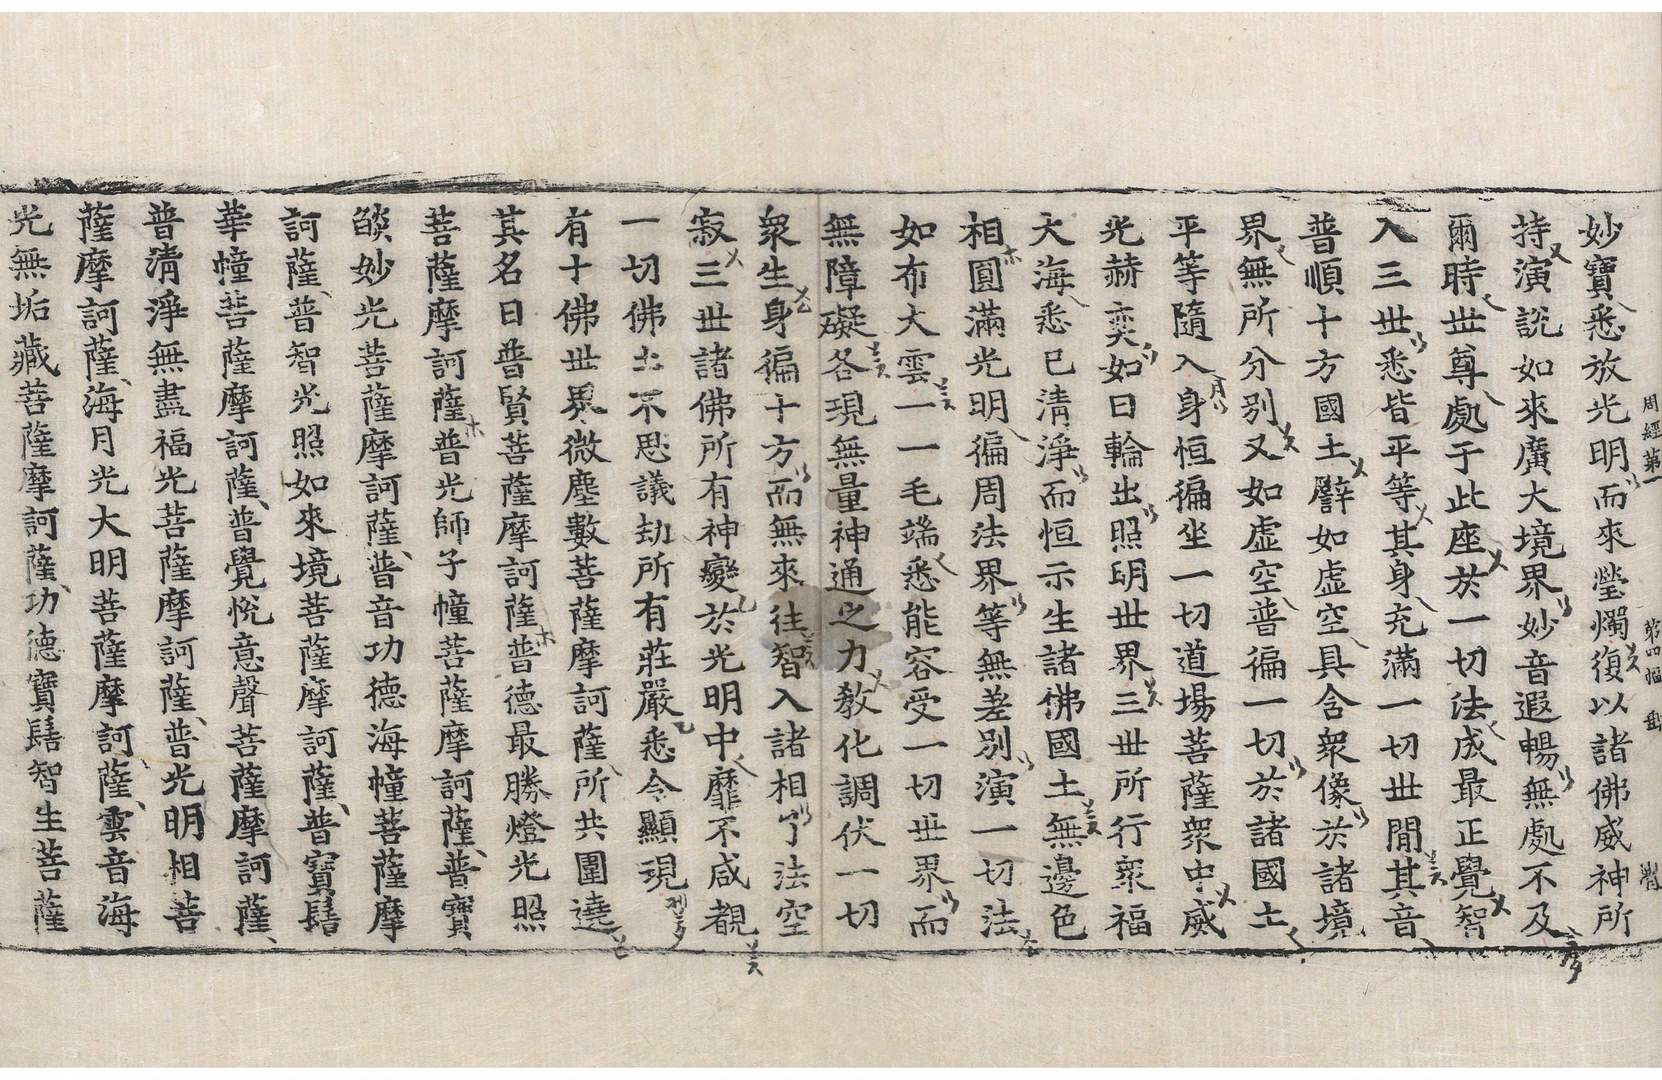 妙寶悉放光明而來瑩燭復以諸佛威神所
周經第一
持演說如來廣大境界妙音遐暢無處不及
爾時世尊處于此座於一切法成最正覺智
入三世悉皆平等其身充滿一切世間其音
普順十方國土譬如虛空具含衆像於諸境
界無所分別又如虛空普徧一切於諸國土
平等隨入身恒徧坐一切道場菩薩衆中威
光赫奕如日輪出照明世界三世所行衆福
大海悉已清淨而恒示生諸佛國土無邊色
相圓滿光明徧周法界等無差別演一切法
如布大雲一一毛端悉能容受一切世界而
無障礙各現無量神通之力敎化調伏一切
衆生身徧十方而無來往智入諸相了法空
寂三世諸佛所有神變於光明中靡不咸覩
一切佛土不思議劫所有莊嚴悉令顯現
有十佛世界微塵數菩薩摩訶薩所共圍遶
其名曰普賢菩薩摩訶薩普德最勝燈光照
菩薩摩訶薩普光師子幢菩薩摩訶薩普寶
燄妙光菩薩摩訶薩普音功德海幢菩薩摩
訶薩普智光照如來境菩薩摩訶薩普寶髻
華幢菩薩摩訶薩普覺悅意聲菩薩摩訶薩
普清淨無盡福光菩薩摩訶薩普光明相菩
薩摩訶薩海月光大明菩薩摩訶薩雲音海
光無垢藏菩薩摩訶薩功德寶髻智生菩薩